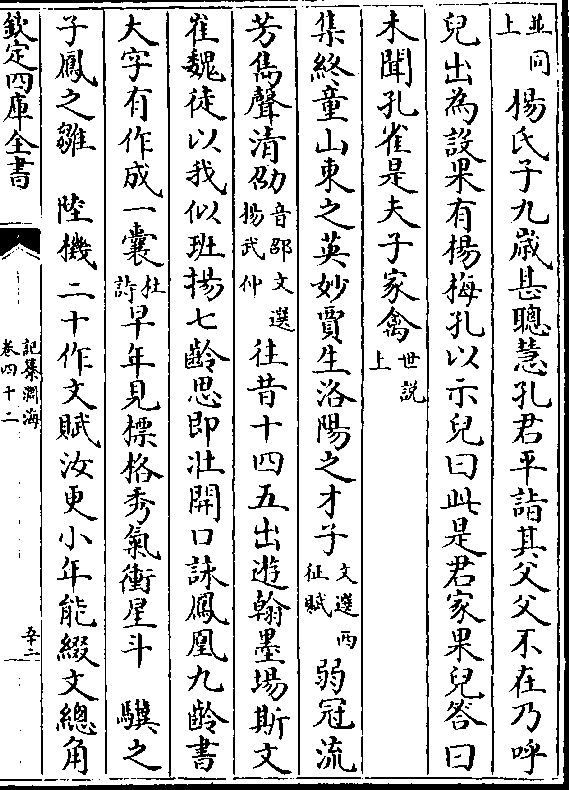 並同上　楊氏子九歲甚聰慧孔君平詣其父父不在乃呼
兒出為設果有楊梅孔以示兒曰此是君家果兒答曰
未聞孔雀是夫子家禽世說上
集終童山東之英妙賈生洛陽之才子文選西征賦　弱冠流
芳雋聲清劭音邵文選楊武仲　往昔十四五出遊翰墨場斯文
崔魏徒以我似班揚七齡思即壯開口詠鳳凰九齡書
大字有作成一囊杜詩早年見標格秀氣衝星斗　驥之
子鳳之雛　陸機二十作文賦汝更小年能綴文總角
欽定四庫全書
記纂淵海
卷四十二